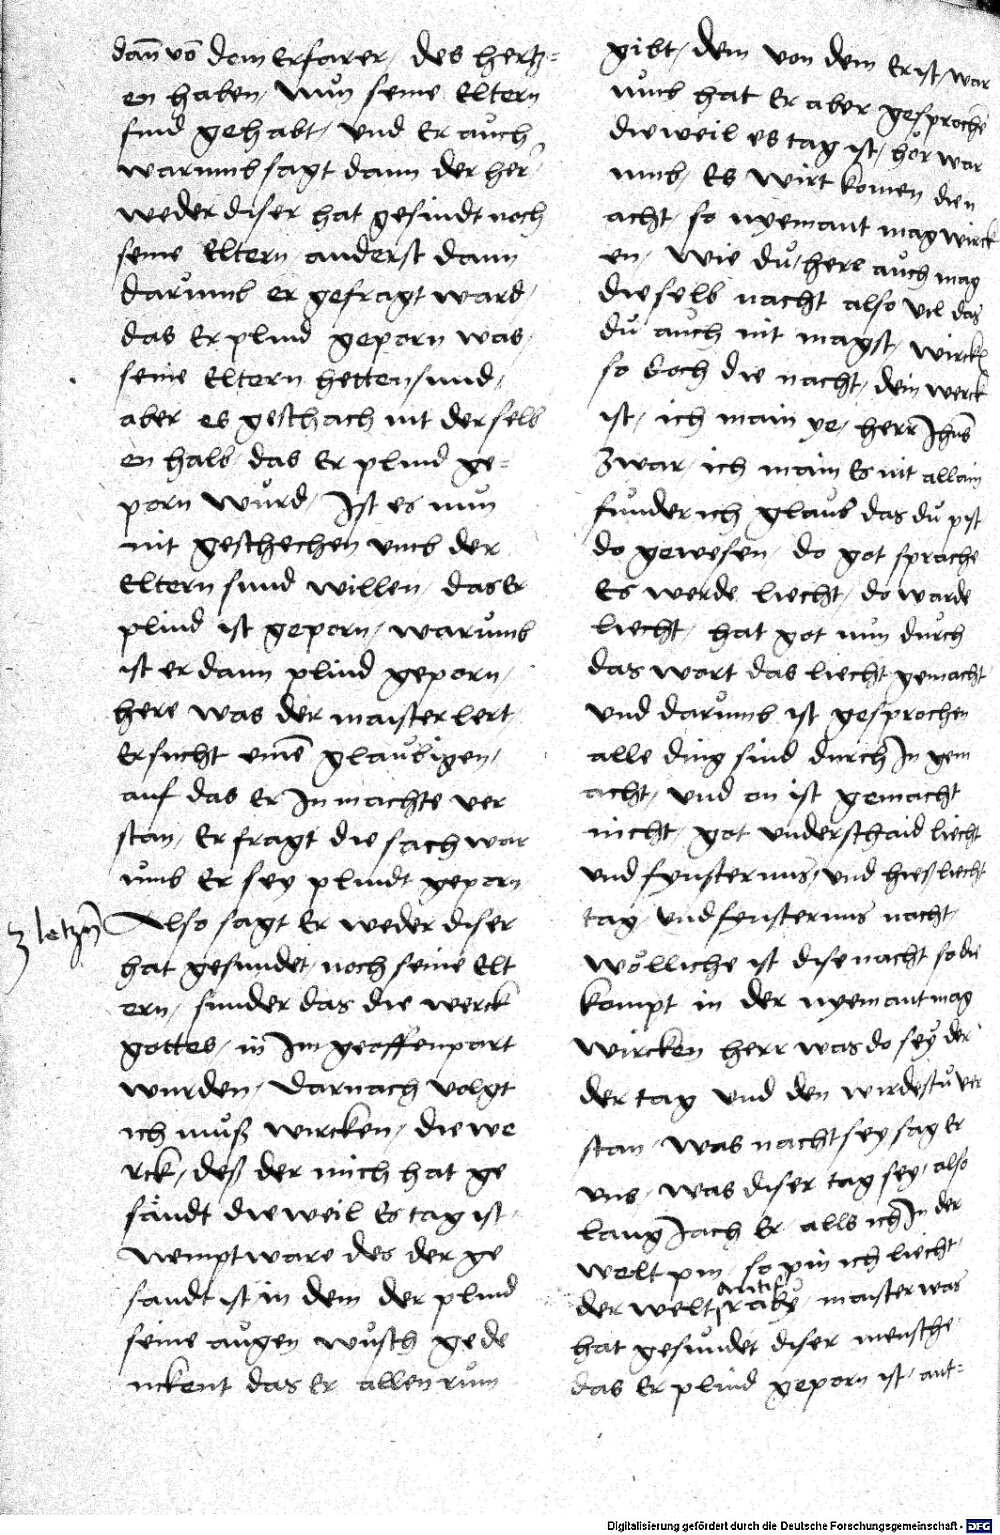 dan̄ vō dem Erfarer / des hertz=
en haben / Nun seine Eltern
sind gehabt / und Er auch
warumb sagt dann der her
weder diser hat gesindt noch
seine Eltern anderst dann
darumb er gefragt ward /
das Er plind geporn was /
seine Eltern hetten sund /
aber es geschach nit derselb
en halb / das Er plind ge=
porn wurd / Ist es nun
nit geschechen umb der
Eltern sund willen / das Er
plind ist geporn / warumb
ist er dann plind geporn /
here was der maister lert /
Er sucht einē glaubigen /
auf das Er In machte ver
stan / Er fragt die sach war
umb Er sey plindt geporn
Also sagt Er weder diser
hat gesundet / noch seine Elt
ern / sunder das die werck
gottes / in Im geoffenport
wurden / Darnach volgt
ich muß wircken / die we
rck / deß der mich hat ge
sändt die weil Es tag ist /
Nempt ware des der ge
sandt ist / in dem der plind
seine augen wusch gede
nckent das Er allen rum
3 letzn̄
gibt / dem von dem Er ist / war
umb hat Er aber gesprochē
die weil es tag ist / hör war
umb / Es wirt komen dien
acht / so nyemant mag wirck
en / Wie du / herr auch mag
dieselb nacht also vil das
du auch nit magst / wircken
so doch die nacht / dein werck
ist / ich main ye / herr Jhūs
zwar / ich main Es nit allain
sunder ich glaub das du pist
do gewesen / do got sprache
Es werde liecht / do warde
liecht / hat got nun durch
das wort das liecht gemacht
und darumb ist gesprochen
alle ding sind durch In gem
acht / und on ist gemacht
nicht / got underschaid liecht
und fynsternus / und hies liecht
tag / und fynsternus nacht /
wölliche ist dise nacht so die
kompt in der nyemant mag
wircken herr was do sey der
der tag und den wirdestu ver
stan / was nacht sey sag Er
uns / was diser tag sey / also
lang Jach Er alls ich In der
welt pin / so pin ich liecht
der welt / maister was
hat gesundet diser mensche
das Er plind geporn ist / ant=
Digitalisierung gefördert durch die Deutsche Forschungsgemeinschaft - DFG